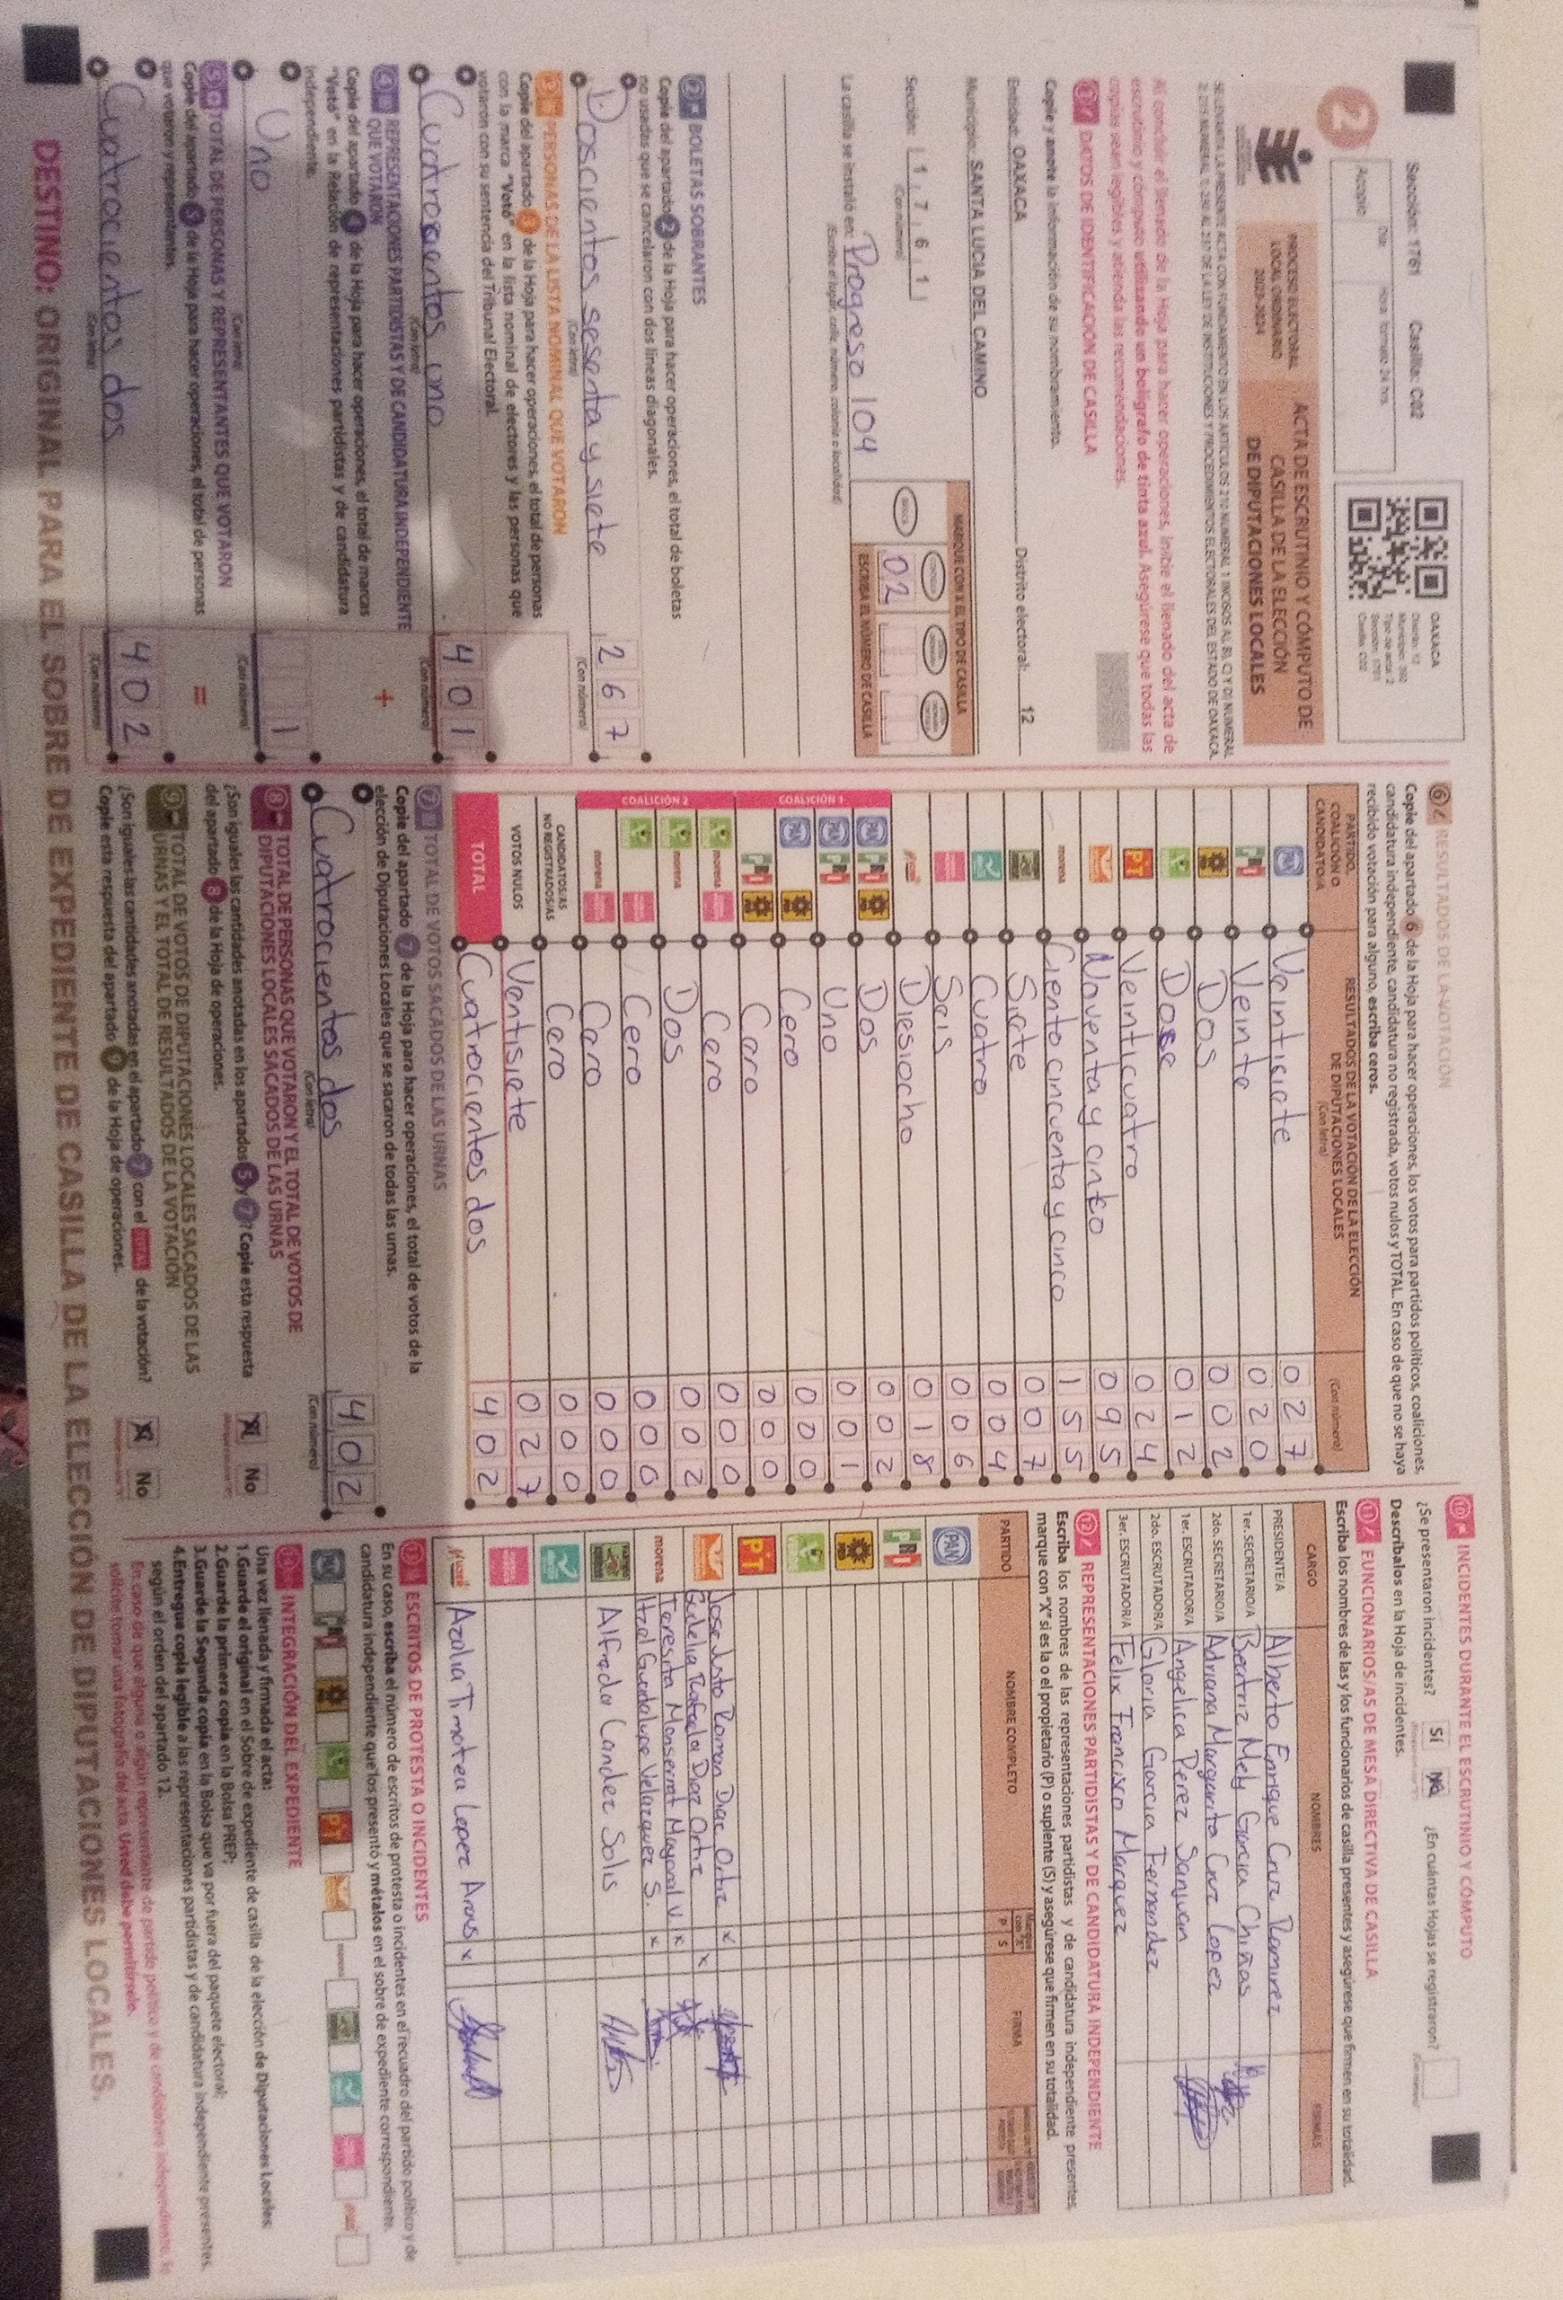 Sección: 1761 Casilla: C02
2
Acopio
Día: Hora: formato 24 hrs.
OAXACA
Distrito: 12
Tipo de acta: 2
Casilla: C02
PROCESO ELECTORAL
LOCAL ORDINARIO
2023-2024
ACTA DE ESCRUTINIO Y CÓMPUTO DE
CASILLA DE LA ELECCIÓN
DE DIPUTACIONES LOCALES
Al concluir el llenado de la Hoja para hacer operaciones, inicie el llenado del acta de
escrutinio y cómputo utilizando un bolígrafo de tinta azul. Asegúrese que todas las
copias sean legibles y atienda las recomendaciones.
1 DATOS DE IDENTIFICACIÓN DE CASILLA
Copie y anote la información de su nombramiento.
Entidad: OAXACA Distrito electoral: 12
Municipio: SANTA LUCIA DEL CAMINO
Sección: 1 7 6 1
(Con número)
MARQUE CON X EL TIPO DE CASILLA
02
ESCRIBA EL NÚMERO DE CASILLA
La casilla se instaló en: Progreso 104
(Escriba el lugar, calle, número, colonia o localidad)
2 BOLETAS SOBRANTES
Copie del apartado 2 de la Hoja para hacer operaciones, el total de boletas
no usadas que se cancelaron con dos líneas diagonales.
Doscientos sesenta y siete 267
(Con letra) (Con número)
3 PERSONAS DE LA LISTA NOMINAL QUE VOTARON
Copie del apartado 3 de la Hoja para hacer operaciones, el total de personas
con la marca "Votó" en la lista nominal de electores y las personas que
votaron con su sentencia del Tribunal Electoral.
Cuatrocientos uno 401
(Con letra) (Con número)
4 REPRESENTACIONES PARTIDISTAS Y DE CANDIDATURA INDEPENDIENTE
QUE VOTARON
+
Copie del apartado 4 de la Hoja para hacer operaciones, el total de marcas
"Votó" en la Relación de representaciones partidistas y de candidatura
independiente.
Uno 1
(Con letra) (Con número)
5 TOTAL DE PERSONAS Y REPRESENTANTES QUE VOTARON
=
Copie del apartado 5 de la Hoja para hacer operaciones, el total de personas
que votaron y representantes.
Cuatrocientos dos 402
(Con letra) (Con número)
6 RESULTADOS DE LA VOTACIÓN
Copie del apartado 6 de la Hoja para hacer operaciones, los votos para partidos políticos, coaliciones,
candidatura independiente, candidatura no registrada, votos nulos y TOTAL. En caso de que no se haya
recibido votación para alguno, escriba ceros.
PARTIDO,
COALICIÓN O
CANDIDATO/A
RESULTADOS DE LA VOTACIÓN DE LA ELECCIÓN
DE DIPUTACIONES LOCALES
(Con letra)
(Con número)
PAN Veintisiete 027
PRI Veinte 020
PRD Dos 002
Doce 012
PT Veinticuatro 024
Noventa y cinco 095
morena Ciento cincuenta y cinco 155
Siete 007
Cuatro 004
Seis 006
Diesiocho 018
COALICIÓN 1
PAN PRI PRD Dos 002
PAN PRI Uno 001
PAN PRD Cero 000
PRI PRD Cero 000
COALICIÓN 2
morena Cero 000
morena Dos 002
Cero 000
morena Cero 000
CANDIDATOS/AS
NO REGISTRADOS/AS Cero 000
VOTOS NULOS Ventisiete 027
TOTAL Cuatrocientos dos 402
7 TOTAL DE VOTOS SACADOS DE LAS URNAS
Copie del apartado 7 de la Hoja para hacer operaciones, el total de votos de la
elección de Diputaciones Locales que se sacaron de todas las urnas.
Cuatrocientos dos 402
(Con letra) (Con número)
8 TOTAL DE PERSONAS QUE VOTARON Y EL TOTAL DE VOTOS DE
DIPUTACIONES LOCALES SACADOS DE LAS URNAS
¿Son iguales las cantidades anotadas en los apartados 5 y 7? Copie esta respuesta
del apartado 8 de la Hoja de operaciones.
Sí No
9 TOTAL DE VOTOS DE DIPUTACIONES LOCALES SACADOS DE LAS
URNAS Y EL TOTAL DE RESULTADOS DE LA VOTACIÓN
¿Son iguales las cantidades anotadas en el apartado 7 con el TOTAL de la votación?
Copie esta respuesta del apartado 9 de la Hoja de operaciones.
Sí No
10 INCIDENTES DURANTE EL ESCRUTINIO Y CÓMPUTO
¿Se presentaron incidentes? Sí No ¿En cuántas Hojas se registraron?
(Con número)
Descríbalos en la Hoja de incidentes.
11 FUNCIONARIOS/AS DE MESA DIRECTIVA DE CASILLA
Escriba los nombres de las y los funcionarios de casilla presentes y asegúrese que firmen en su totalidad.
CARGO NOMBRES FIRMAS
PRESIDENTE/A Alberto Enrique Cruz Ramirez
1er. SECRETARIO/A Beatriz Mely Garcia Chiñas
2do. SECRETARIO/A Adriana Margarita Cruz Lopez
1er. ESCRUTADOR/A Angelica Perez Sanjuan
2do. ESCRUTADOR/A Gloria Garcia Fernandez
3er. ESCRUTADOR/A Felix Francisco Marquez
12 REPRESENTACIONES PARTIDISTAS Y DE CANDIDATURA INDEPENDIENTE
Escriba los nombres de las representaciones partidistas y de candidatura independiente presentes,
marque con "X" si es la o el propietario (P) o suplente (S) y asegúrese que firmen en su totalidad.
PARTIDO NOMBRE COMPLETO P S FIRMA
PAN
PRI
PRD
PT
Jose Justo Roman Diaz Ortiz x
Gudelia Rafaela Diaz Ortiz x
morena Teresita Monserrat Mayoral V. x
Itzel Guadalupe Velazquez S. x
Alfredo Candez Solis
Azalia Timotea Lopez Arms x
13 ESCRITOS DE PROTESTA O INCIDENTES
En su caso, escriba el número de escritos de protesta o incidentes en el recuadro del partido político y de
candidatura independiente que los presentó y métalos en el sobre de expediente correspondiente.
14 INTEGRACIÓN DEL EXPEDIENTE
Una vez llenada y firmada el acta:
1.Guarde el original en el Sobre de expediente de casilla de la elección de Diputaciones Locales;
2.Guarde la primera copia en la Bolsa PREP;
3.Guarde la Segunda copia en la Bolsa que va por fuera del paquete electoral;
4.Entregue copia legible a las representaciones partidistas y de candidatura independiente presentes,
según el orden del apartado 12.
En caso de que alguna o algún representante de partido político y de candidatura independiente, le
solicite tomar una fotografía del acta. Usted debe permitírselo.
DESTINO: ORIGINAL PARA EL SOBRE DE EXPEDIENTE DE CASILLA DE LA ELECCIÓN DE DIPUTACIONES LOCALES.